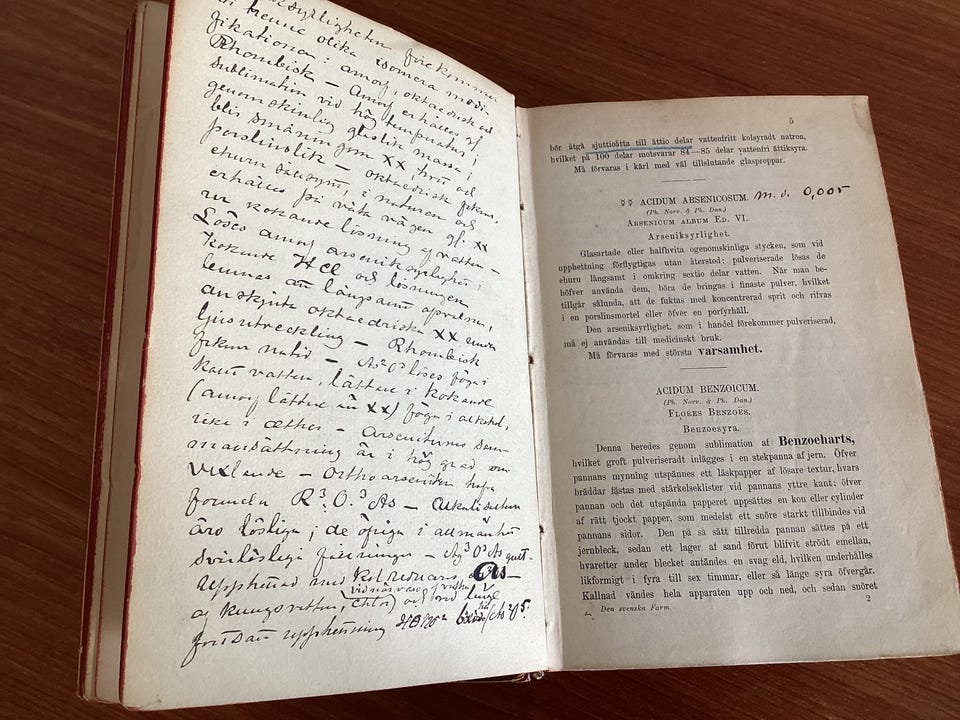 förekommer
i trenne olika isomera modi-
fikationer: amorf, oktaedrisk och
Rhombisk – Amorf erhålles gm
sublimation vid hög temperatur,
genomskinlig glaslik massa,
blir småningom XX, hvit och
porslinslik – oktaedrisk förkom.
i naturen och
erhålles på våta vägen gm XX
ur kokande lösning af vatten –
Löses amorf arseniksyrlighet i
kokande HCl och lösningen
lemnas att långsamt afsvalna,
anskjuta oktaedriska XX under
ljusutveckling – Rhombisk
löses föga i
kallt vatten, lättare i kokande
(amorf lättare än XX) föga i alkohol,
– Arseniternas sam-
mansättning är i hög grad om
vexlande – Ortho arseniten hafva
formeln R³.O.³As – Alkalisalterna
äro lösliga; de öfriga i allmänhet
svårlösliga fällningar – Ag³O³As gult.
Upphettad med kol reduceras As –
kungsvatten,
fortsatt upphettning
5
bör åtgå sjuttioåtta till åttio delar vattenfritt kolsyradt natron,
hvilket på 100 delar motsvarar 84—85 delar vattenfri ättiksyra.
Må förvaras i kärl med väl tillslutande glasproppar.
☿☿ ACIDUM ARSENICOSUM. m. d. 0,005
(Ph. Norv. & Ph. Dan.)
ARSENICUM ALBUM ED. VI.
Arseniksyrlighet.
Glasartade eller halfhvita ogenomskinliga stycken, som vid
upphettning förflygtigas utan återstod: pulveriserade lösas de
ehuru långsamt i omkring sextio delar vatten. När man be-
höfver använda dem, böra de bringas i finaste pulver, hvilket
tillgår sålunda, att de fuktas med koncentrerad sprit och rifvas
i en porslinsmortel eller öfver en porfyrhäll.
Den arseniksyrlighet. som i handel förekommer pulveriserad,
må ej användas till medicinskt bruk.
Må förvaras med största varsamhet.
ACIDUM BENZOICUM.
(Ph. Norv. & Ph. Dan.)
FLORES BENZOËS.
Benzoesyra.
Denna beredes genom sublimation af Benzoeharts,
hvilket groft pulveriseradt inlägges i en stekpanna af jern. Öfver
pannans mynning utspännes ett läskpapper af lösare textur, hvars
bräddar fästas med stärkelseklister vid pannans yttre kant: öfver
pannan och det utspända papperet uppsättes en kon eller cylinder
af rätt tjockt papper, som medelst ett snöre starkt tillbindes vid
pannans sidor. Den på så sätt tillredda pannan sättes på ett
jernbleck, sedan ett lager af sand förut blifvit strödt emellan,
hvarefter under blecket antändes en svag eld, hvilken underhålles
likformigt i fyra till sex timmar, eller så länge syra öfvergår.
Kallnad vändes hela apparaten upp och ned, och sedan snöret
Den svenska Farm.
2